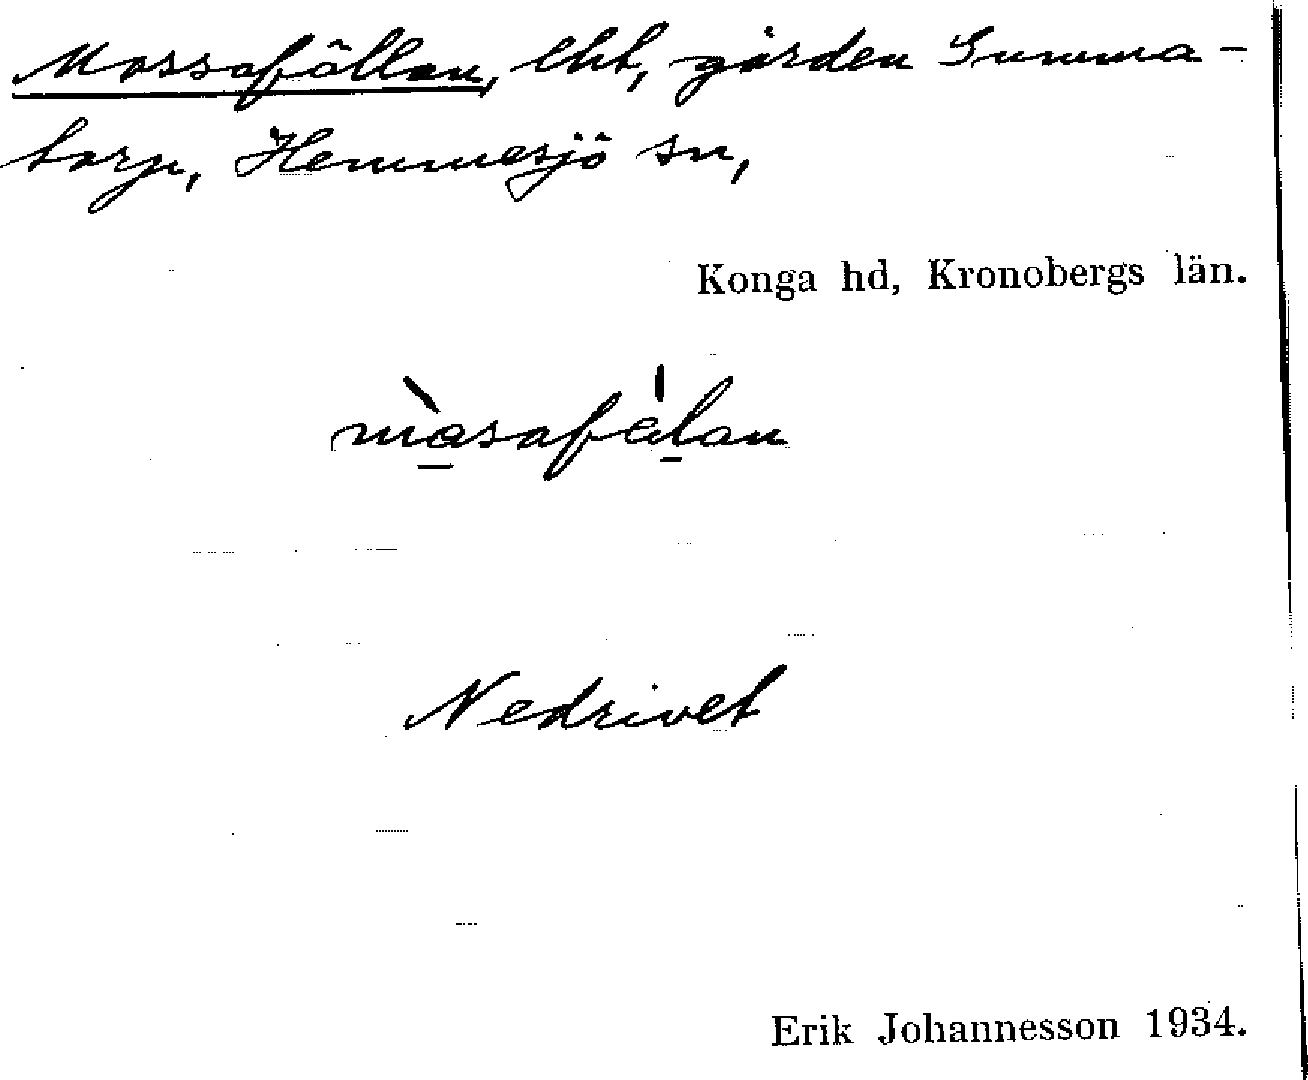 Mossafällan, lht, gården Gumma-
torp, Hemmesjö sn,
Konga hd, Kronobergs län.
màsafälan
Nedrivet
Erik Johannesson 1934.